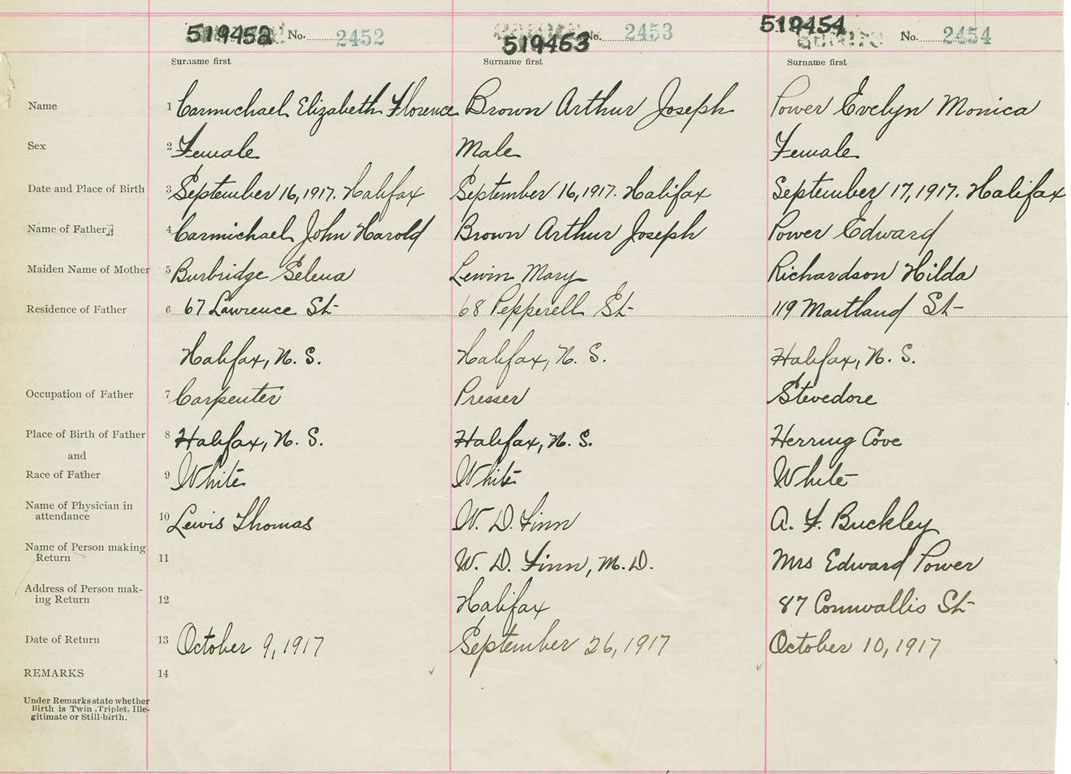 519452 No. 2452 519453 No. 2453 519454 No. 2454
Surname first Surname first Surname first
Name 1 Carmichael Elizabeth Florence Brown Arthur Joseph Power Evelyn Monica
Sex 2 Female Male Female
Date and Place of Birth 3 September 16, 1917. Halifax September 16, 1917. Halifax September 17, 1917. Halifax
Name of Father 4 Carmichael John Harold Brown Arthur Joseph Power Edward
Maiden Name of Mother 5 Burbridge Selena Lewin Mary Richardson Hilda
Residence of Father 6 67 Lawrence St 68 Pepperell St 119 Maitland St
Halifax, N. S. Halifax, N. S. Halifax, N. S.
Occupation of Father 7 Carpenter Presser Stevedore
Place of Birth of Father 8 Halifax, N. S. Halifax, N. S. Herring Cove
and
Race of Father 9 White White White
Name of Physician in
attendance 10 Lewis Thomas W. D. Finn A. F. Buckley
Name of Person making
Return 11 W. D. Finn, M.D. Mrs Edward Power
Address of Person mak-
ing Return 12 Halifax 87 Cornwallis St
Date of Return 13 October 9, 1917 September 26, 1917 October 10, 1917
REMARKS 14
Under Remarks state whether
Birth is Twin, Triplet, Ille-
gitimate or Still-birth.